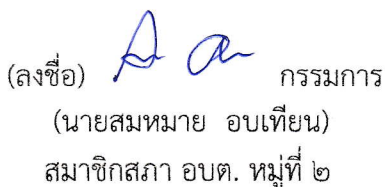 (ลงชื่อ) กรรมการ
(นายสมหมาย อบเทียน)
สมาชิกสภา อบต. หมู่ที่ ๒